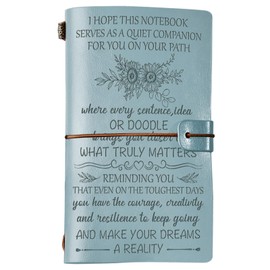 I HOPE THIS NOTEBOOK
SERVES AS A QUIET COMPANION
FOR YOU ON YOUR PATH
where every sentence, idea
OR DOODLE
brings you closer to
WHAT TRULY MATTERS
REMINDING YOU
THAT EVEN ON THE TOUGHEST DAYS
you have the courage, creativity
and resilience to keep going
AND MAKE YOUR DREAMS
A REALITY